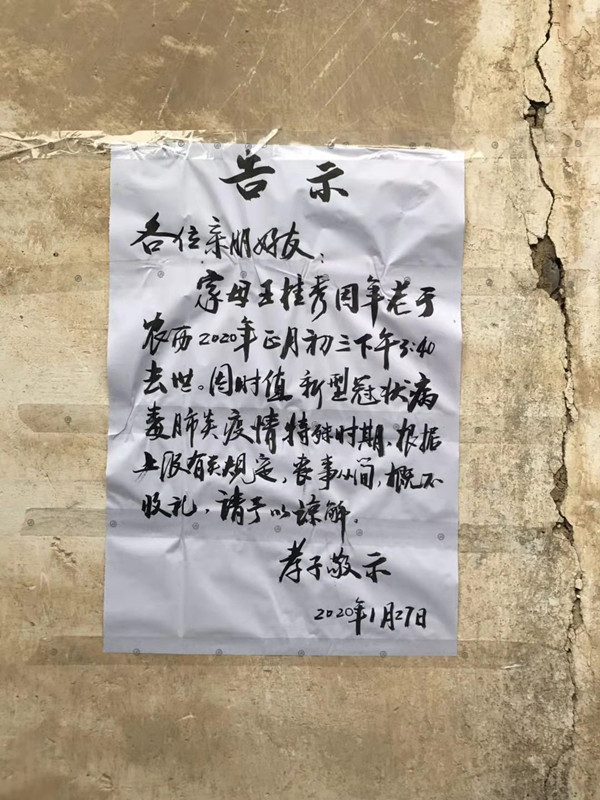 告示
各位亲朋好友:
家母王桂秀因年老于
农西2020年正月初三下午3:40
去世。因时值新型冠状病
毒肺炎疫情特殊时期,根据
上级有关规定,丧事从简,概不
收礼,请予以谅解。
孝子敬示
2020年1月27日